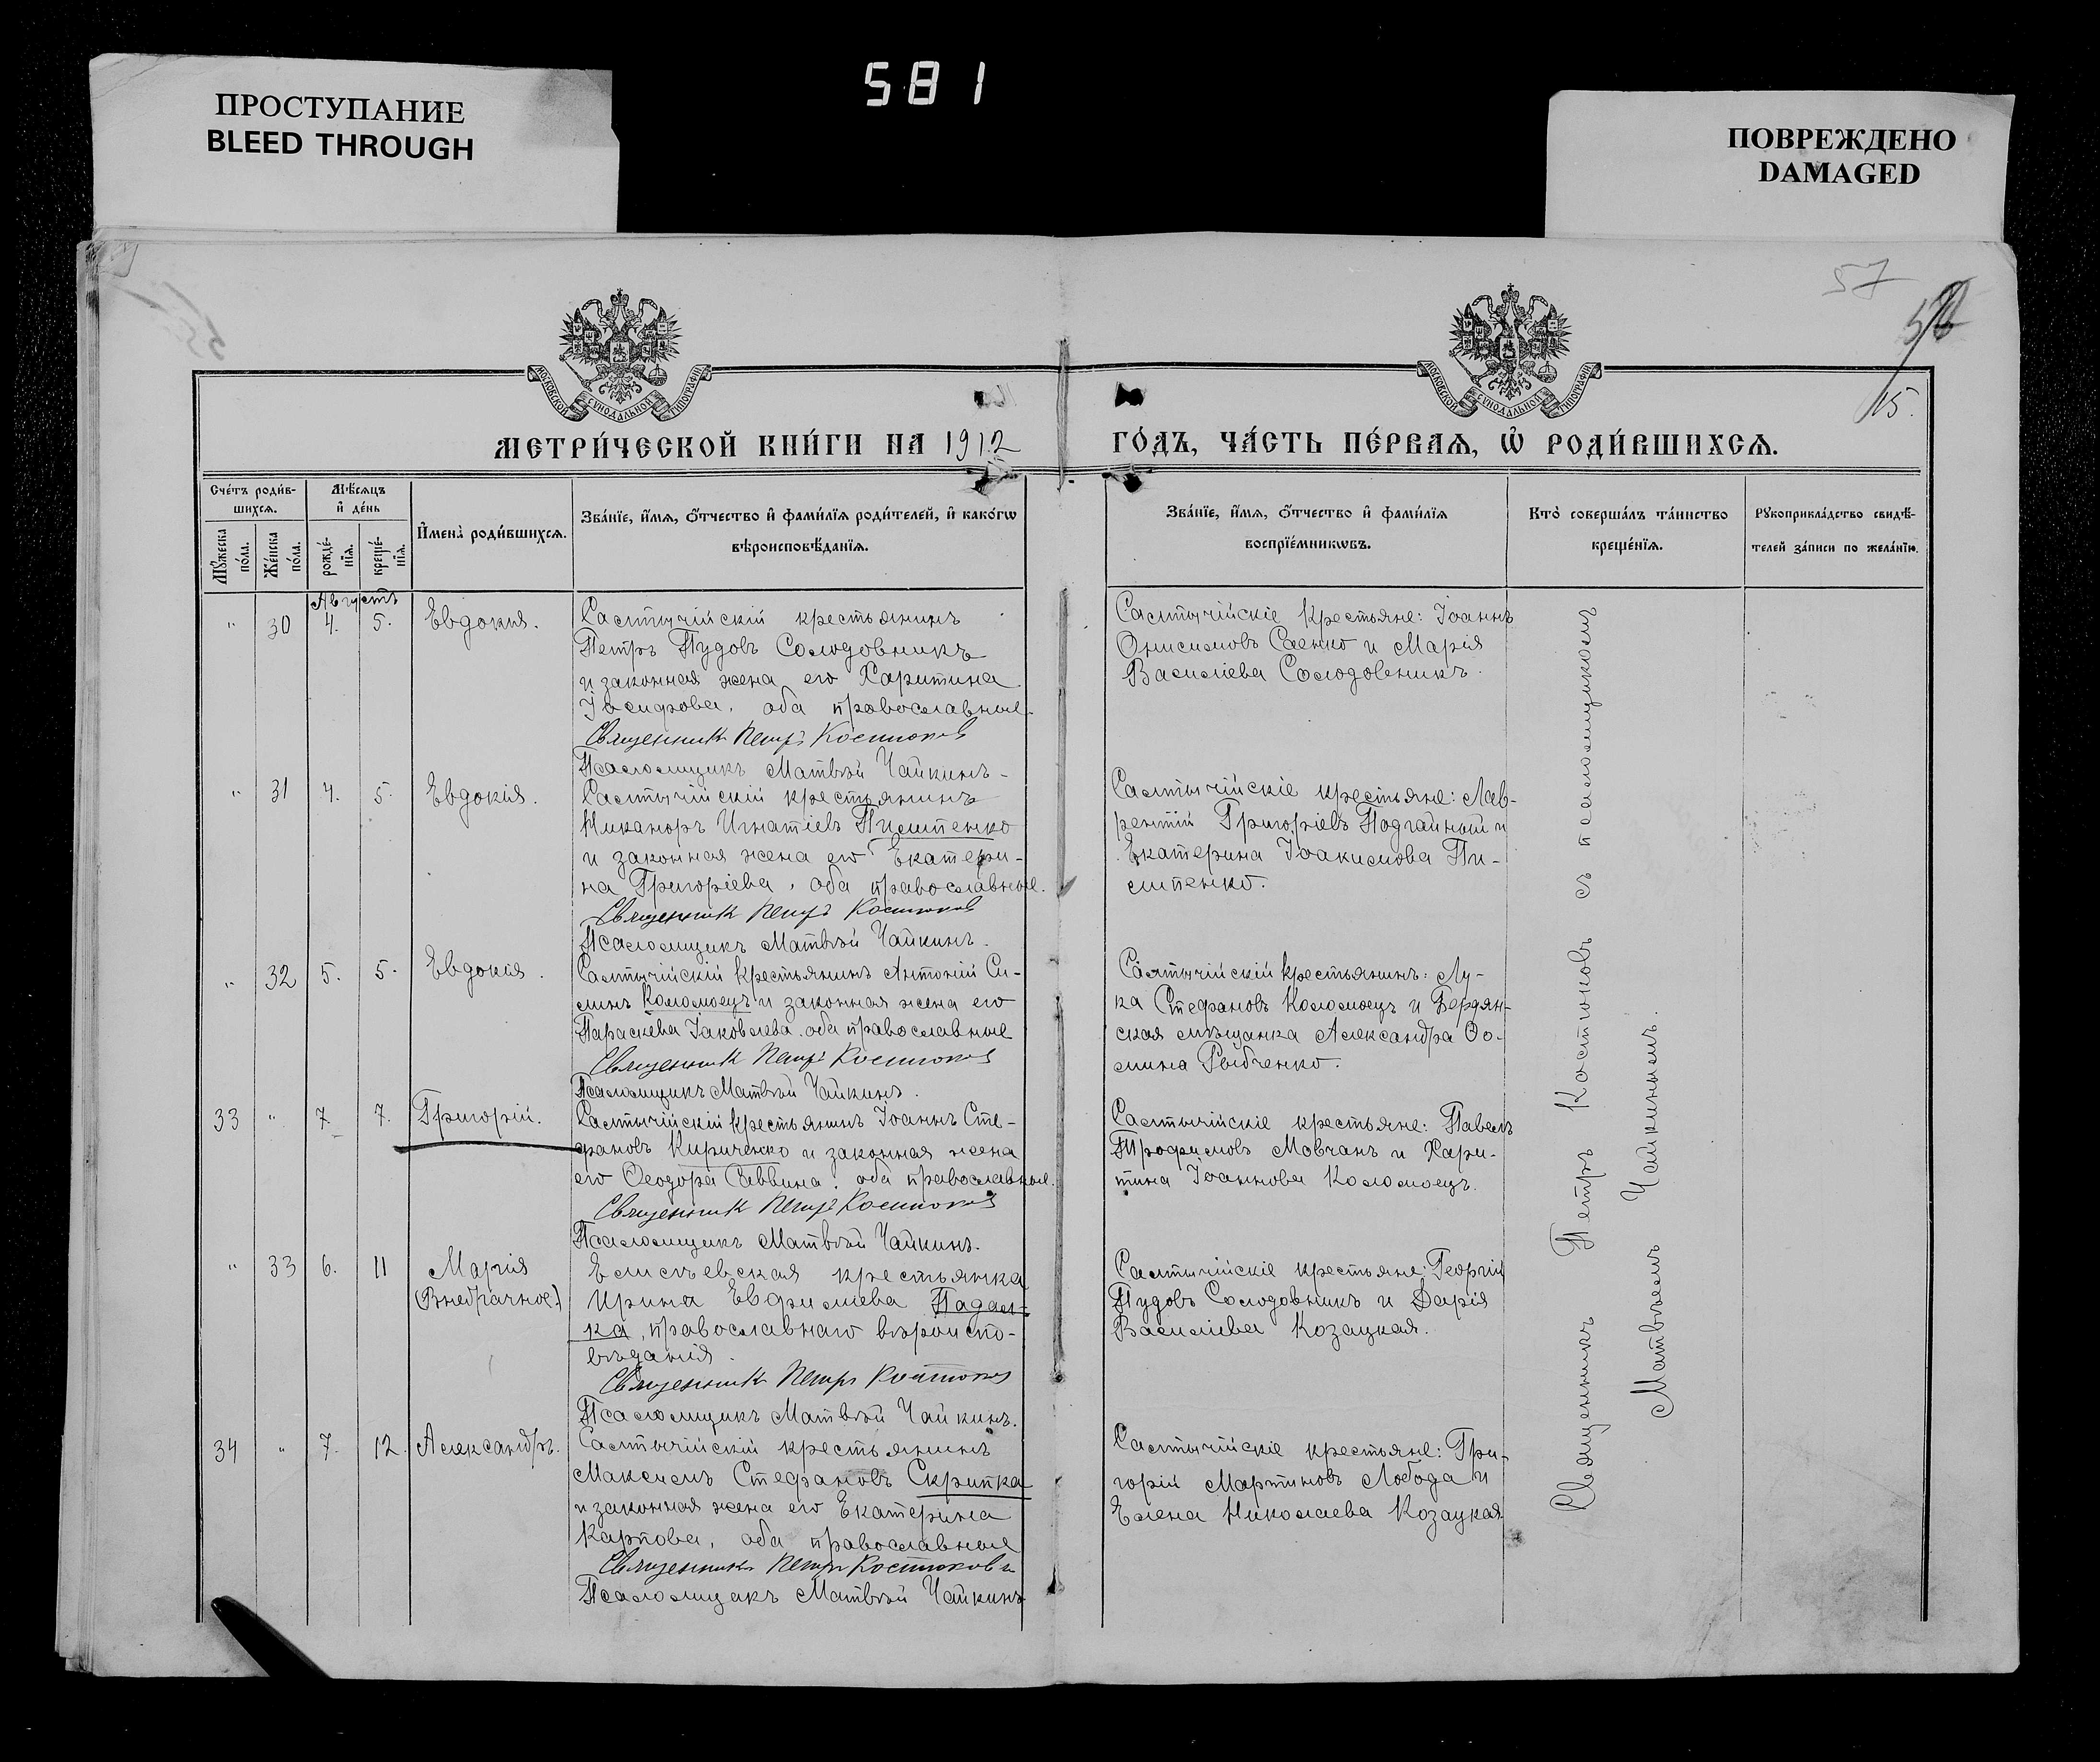 581
ПРОСТУПАНИЕ
BLEED THROUGH
ПОВРЕЖДЕНО
DAMAGED
57
15.
МОСКОВСКОЙ СѴНОДАЛЬНОЙ ТИПОГРАФІИ
МОСКОВСКОЙ СѴНОДАЛЬНОЙ ТИПОГРАФІИ
МЕТРИ́ЧЕСКОЙ КНИ́ГИ НА 1912 ГО́ДЪ, ЧА́СТЬ ПЕ́РВАѦ, Ѿ РОДИ́ВШИХСѦ.
Сче́тъ роди́в-
шихсѧ.
Мꙋ́жеска по́ла.
Же́нска по́ла.
Мѣ́сѧцъ
и҆ де́нь
рожде́-
нїѧ.
креще́-
нїѧ.
И҆мена̀ роди́вшихсѧ.
Зва́нїе, и҆́мѧ, ѻ҆́тчество и҆ фами́лїѧ роди́телей, и҆ како́гѡ
вѣроисповѣ́данїѧ.
Зва́нїе, и҆́мѧ, ѻ҆́тчество и҆ фами́лїѧ
воспрїе́мникѡвъ.
Кто̀ соверша́лъ та́инство
креще́нїѧ.
Рꙋкоприкла́дство свидѣ́-
телей за́писи по жела́нїю.
Августъ
" 30 4. 5. Евдокия.
Салтычійскій крестьянинъ
Петръ Пудовъ Солодовникъ
и законная жена его Харитина
Іосифова, оба православные.
Священникъ Петръ Костюковъ
Псаломщикъ Матвѣй Чайкинъ.
Салтычійскіе крестьяне: Іоаннъ
Онисимовъ Саенко и Марія
Василіева Солодовникъ.
" 31 4. 5. Евдокія.
Салтычійскій крестьянинъ
Никаноръ Игнатіевъ Писмпенко
и законная жена его Екатери-
на Григоріева, оба православные.
Священникъ Петръ Костюковъ
Псаломщикъ Матвѣй Чайкинъ.
Салтычійскіе крестьяне: Лав-
рентій Григоріевъ Подгайный и
Екатерина Іоакимова
" 32 5. 5. Евдокія.
Салтычійскій крестьянинъ Антоній Си-
минъ Коломоецъ и законная жена его
Параскева Іаковлева. оба православные
Священникъ Петръ Костюковъ
Псаломщикъ Матвѣй Чайкинъ.
Салтычійскій крестьянинъ: Лу-
ка Стефановъ Коломоецъ и Бердян-
ская мѣщанка Александра Ѳо-
мина Рыбченко.
33 " 7. 7. Григорій.
Салтычійскій крестьянинъ Іоаннъ Сте-
фановъ Кириченко и законная жена
его Ѳеодора Саввина. оба православные.
Священникъ Петръ Костюковъ
Псаломщикъ Матвѣй Чайкинъ.
Салтычійскіе крестьяне: Павелъ
Трофимовъ Мовчанъ и Хари-
тина Іоаннова Коломоецъ.
" 33 6. 11 Марія
(Внебрачное)
Елисѣевская крестьянка
Ирина Евфиміева Падал-
ка, православнаго вѣроиспо-
вѣданія.
Священникъ Петръ Костюковъ
Псаломщикъ Матвѣй Чайкинъ.
Салтычійскіе крестьяне: Георгій
Пудовъ Солодовникъ и Дарія
Василіева Козацкая.
34 " 7. 12. Александръ.
Салтычійскій крестьянинъ
Максимъ Стефановъ Скрипка
и законная жена его Екатерина
Карпова, оба православные
Священникъ Петръ Костюковъ
Псаломщикъ Матвѣй Чайкинъ
Салтычійскіе крестьяне: Гри-
горій Мартиновъ Лобода и
Елена Николаева Козацкая
Священникъ Петръ Костюковъ съ псаломщикомъ
Матвѣемъ Чайкинымъ.